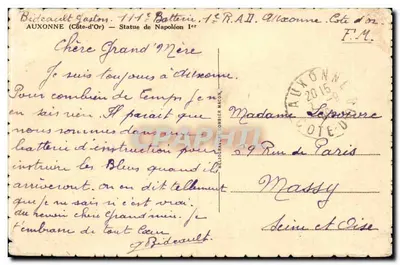 Bideault Gaston. 111e Batterie. 1e R.A.D. Auxonne. Côte d'or
F.M.
AUXONNE (Côte-d'Or) — Statue de Napoléon Ier
Chère Grand'Mère
Je suis toujours à Auxonne.
Pour combien de temps j'en
en sais rien. Il parait que
nous sommes dans une
batterie d'instruction pour
instruire les Bleus quand ils
arriveront, on en dit tellement
que je ne sais si c'est vrai.
au revoir chère Grand'mère. je
t'embrasse de tout Cœur
Bideault.
AUXONNE
20 15
CÔTE-D'OR
Madame
29 Rue de Paris
Massy
Seine et Oise